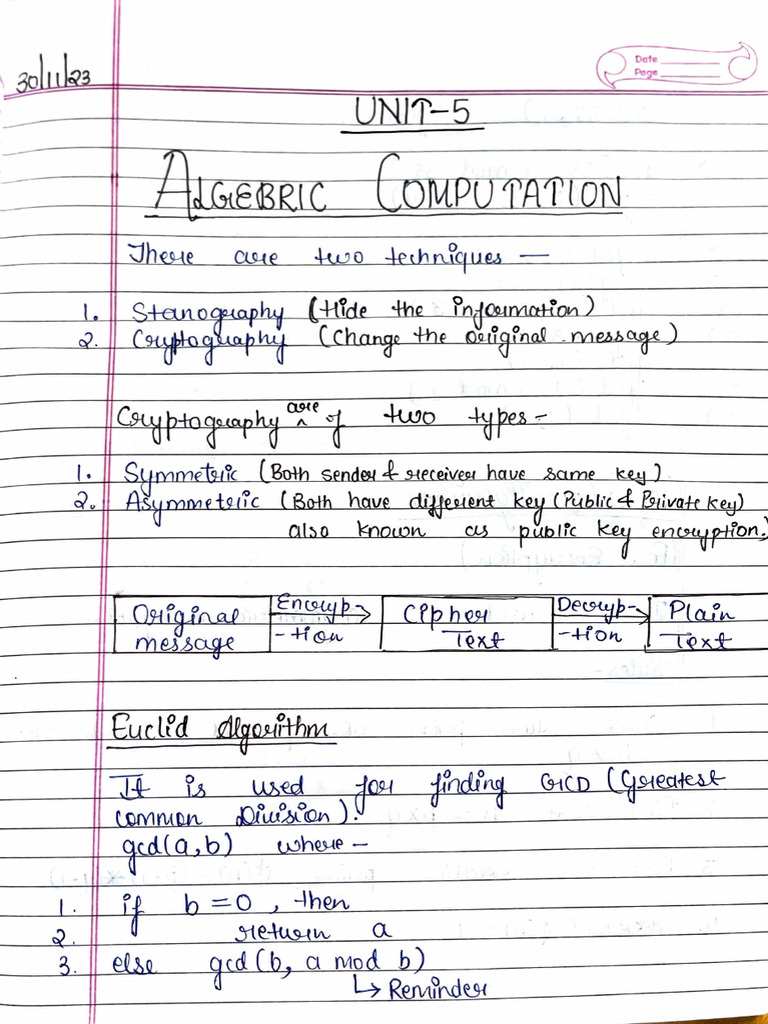 30/11/23
Date
Page
UNIT-5
ALGEBRIC COMPUTATION
There are two techniques —
1. Stenography (Hide the information)
2. Cryptography (Change the original message)
Cryptography are of two types -
1. Symmetric (Both sender & receiver have same key)
2. Asymmetric (Both have different key (Public & Private key)
also known as public key encryption.)
Original Encryp- Cipher Decryp- Plain
message -tion Text -tion Text
Euclid Algorithm
It is used for finding GCD (Greatest
common Division).
gcd(a,b) where —
1. if b = 0, then
2. return a
3. else gcd(b, a mod b)
↳ Reminder